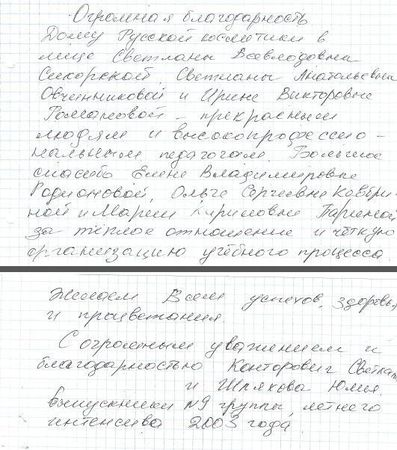 Огромная благодарность
Дому Русской косметики в
лице Светланы Всеволодовны
Сикорской, Светланы Анатольевны
Овчинниковой и Ирине Викторовне
Романовой - прекрасным
людям и высокопрофессио-
нальным педагогам. Большое
спасибо Елене Владимировне
Родионовой, Ольге Сергеевне
ной и Марии Париной
за тёплое отношение и чёткую
организацию учебного процесса.
Желаем Всем успехов, здоровья
и процветания.
С огромным уважением и
благодарностью Канторович
и Шпякова Юлия,
выпускники №9 группы, летнего
интенсива 2003 года